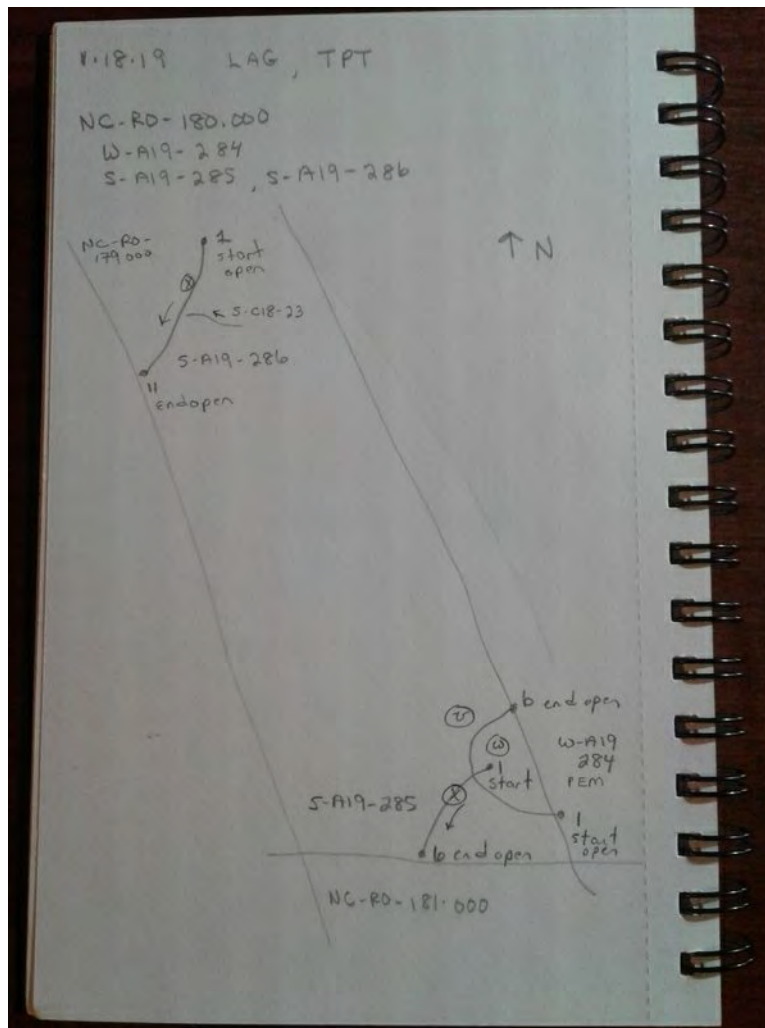 1.18.19 LAG, TPT
NC-RO-180.000
W-A19-284
S-A19-285, S-A19-286
↑ N
NC-RO-
179.000
1
start
open
X
S-C18-23
S-A19-286
11
end open
6 end open
U
W
W-A19
284
PEM
1
start
X
S-A19-285
1
start
open
6 end open
NC-RO-181.000